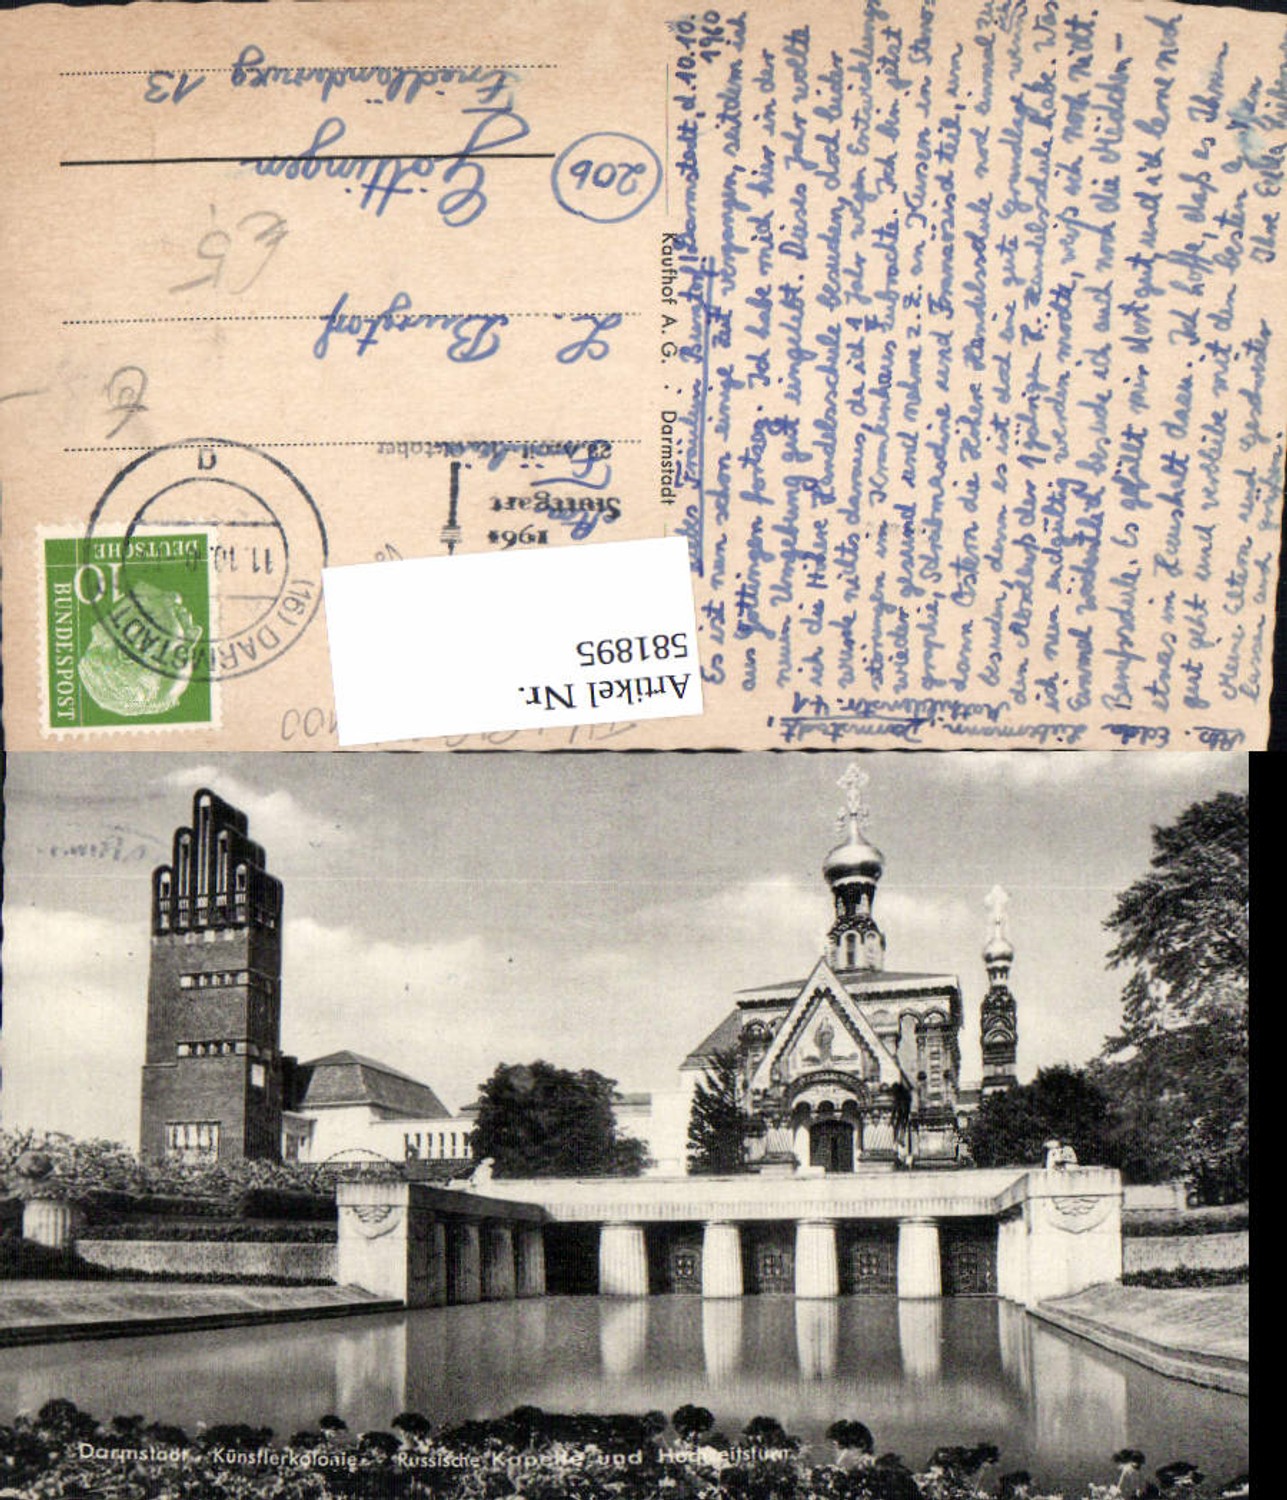 Liebes Fräulein Burgdorf! Darmstadt, d. 10.10.
1960
Es ist nun schon einige Zeit vergangen, seitdem ich
aus Göttingen fortzog. Ich habe mich hier in der
neuen Umgebung gut eingelebt. Dieses Jahr wollte
ich die Höhere Handelsschule besuchen, doch leider
wurde nichts daraus, da ich 1 Jahr wegen Entwicklungs-
störungen im Krankenhaus zubrachte. Ich bin jetzt
wieder gesund und nehme z. Z. an Kursen in Steno-
graphie, Schreibmaschine und Französisch teil, um
dann Ostern die Höhere Handelsschule noch einmal zu
besuchen, denn es ist doch eine gute Grundlage, wenn
ich den Abschluß der 1 jährigen H. Handelsschule habe. Was
ich nun endgültig werden möchte, weiß ich noch nicht.
Einmal wöchentlich besuche ich auch noch die Mädchen-
Berufsschule. Es gefällt mir dort gut und ich lerne noch
etwas im Haushalt dazu. Ich hoffe, daß es Ihnen
gut geht und verbleibe mit den besten Grüßen
Meine Eltern und Geschwister Ihre Edda
lassen auch grüßen!
Abs. Edda
Darmstadt
Mathildenstr. 41
Kaufhof A. G. · Darmstadt
1961
Stuttgart
L. Burgdorf
20b
Göttingen
Friedländerweg 13
(16) DARMSTADT
11.10.
a
DEUTSCHE
BUNDESPOST
10
Artikel Nr.
581895
Darmstadt, Künstlerkolonie - Russische Kapelle und Hochzeitsturm